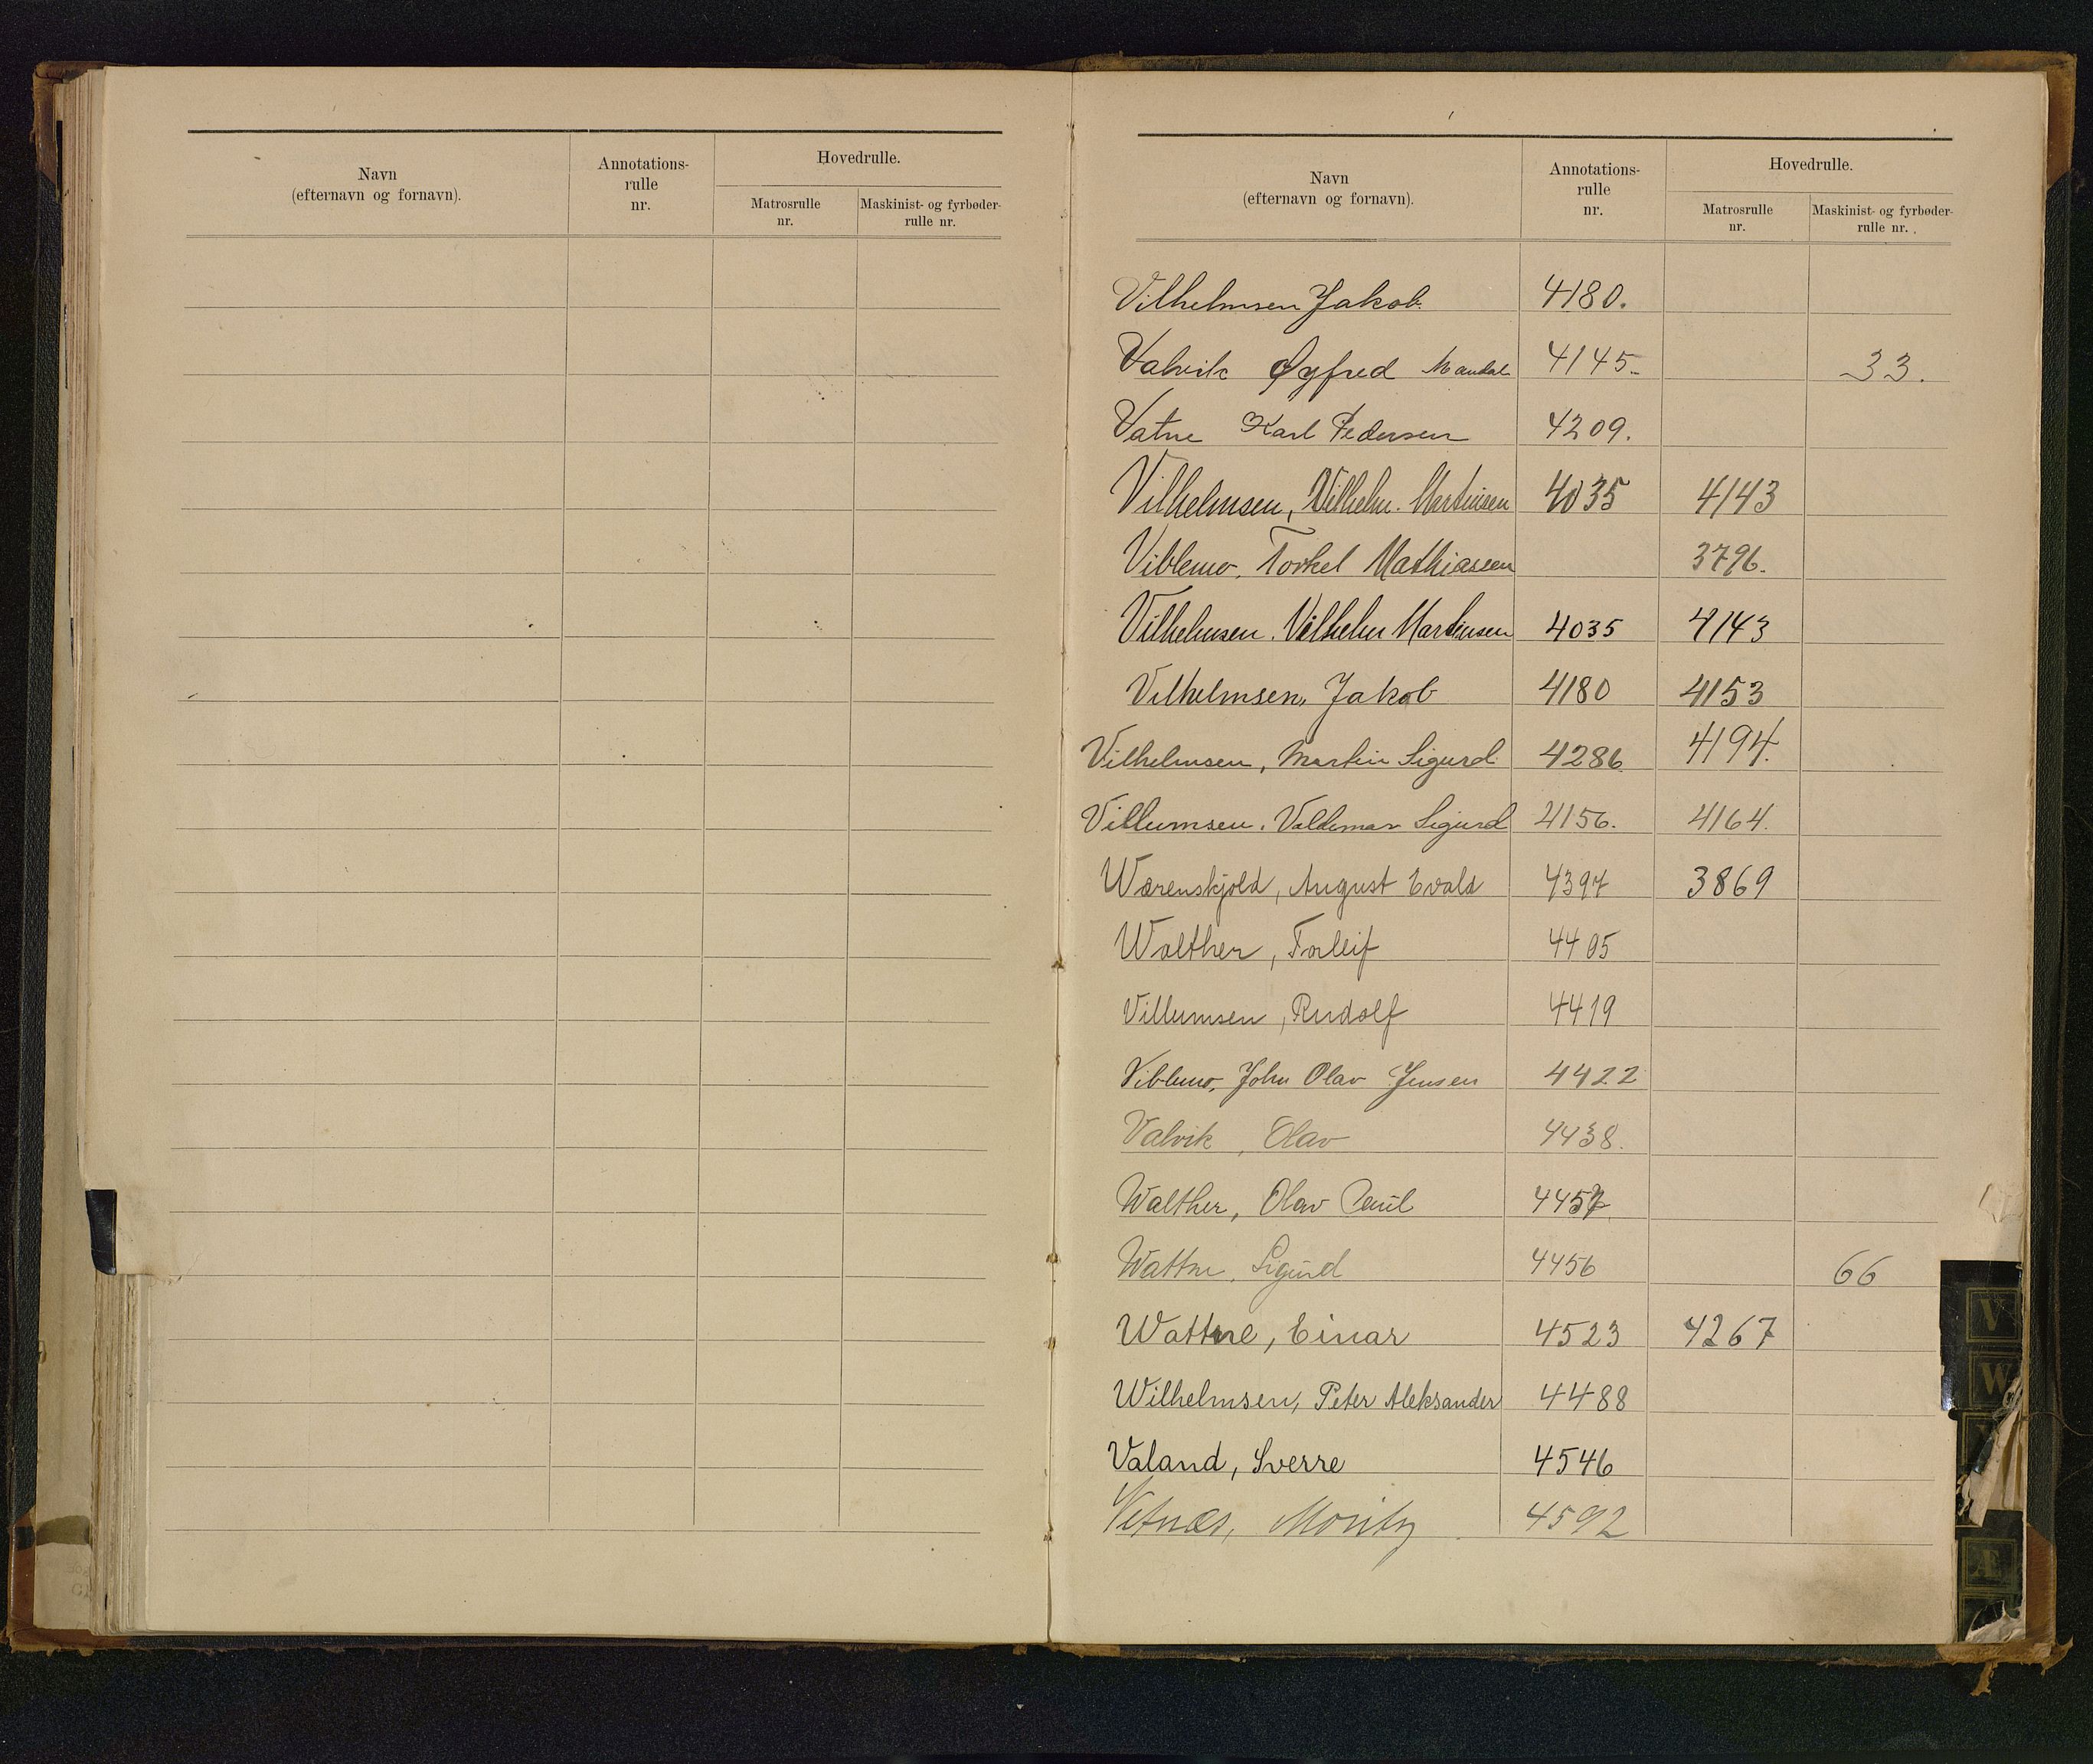 Navn
(efternavn og fornavn).
Annotations-
rulle
nr.
Hovedrulle.
Matrosrulle
nr.
Maskinist- og fyrbøder-
rulle nr.
Navn
(efternavn og fornavn).
Annotations-
rulle
nr.
Hovedrulle.
Matrosrulle
nr.
Maskinist- og fyrbøder-
rulle nr.
Vilhelmsen Jakob. 4180.
Valvik Øyfred Mandal 4145. 33.
Vatne Karl Pedersen 4209.
Vilhelmsen, Vilhelm. Martinsen 4035 4143
Viblemo, Torkel Mathiassen 3796.
Vilhelmsen. Vilhelm Martinsen 4035 4143
Vilhelmsen, Jakob 4180 4153
Vilhelmsen, Martin Sigurd. 4286 4194.
Villumsen. Valdemar Sigurd 4156. 4164.
Wærenskjold, August Evald 4397 3869
Walther, Torleif 4405
Villumsen, Rudolf 4419
Viblemo, John Olav Jensen 4422
Valvik, Olav 4438.
Walther, Olav Paul 4457
Wattne, Sigurd 4456 66
Wattne, Einar 4523 4267
Wilhelmsen, Peter Aleksander 4488
Valand, Sverre 4546
Vetnæs, Moritz 4592
V
W
Æ